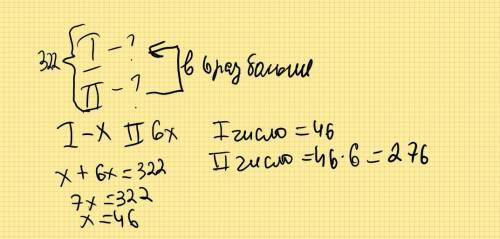 322 { I - ?
II - ?
в 6 раз больше
I - x II 6x
x + 6x = 322
7x = 322
x = 46
I число = 46
II число = 46 · 6 = 276